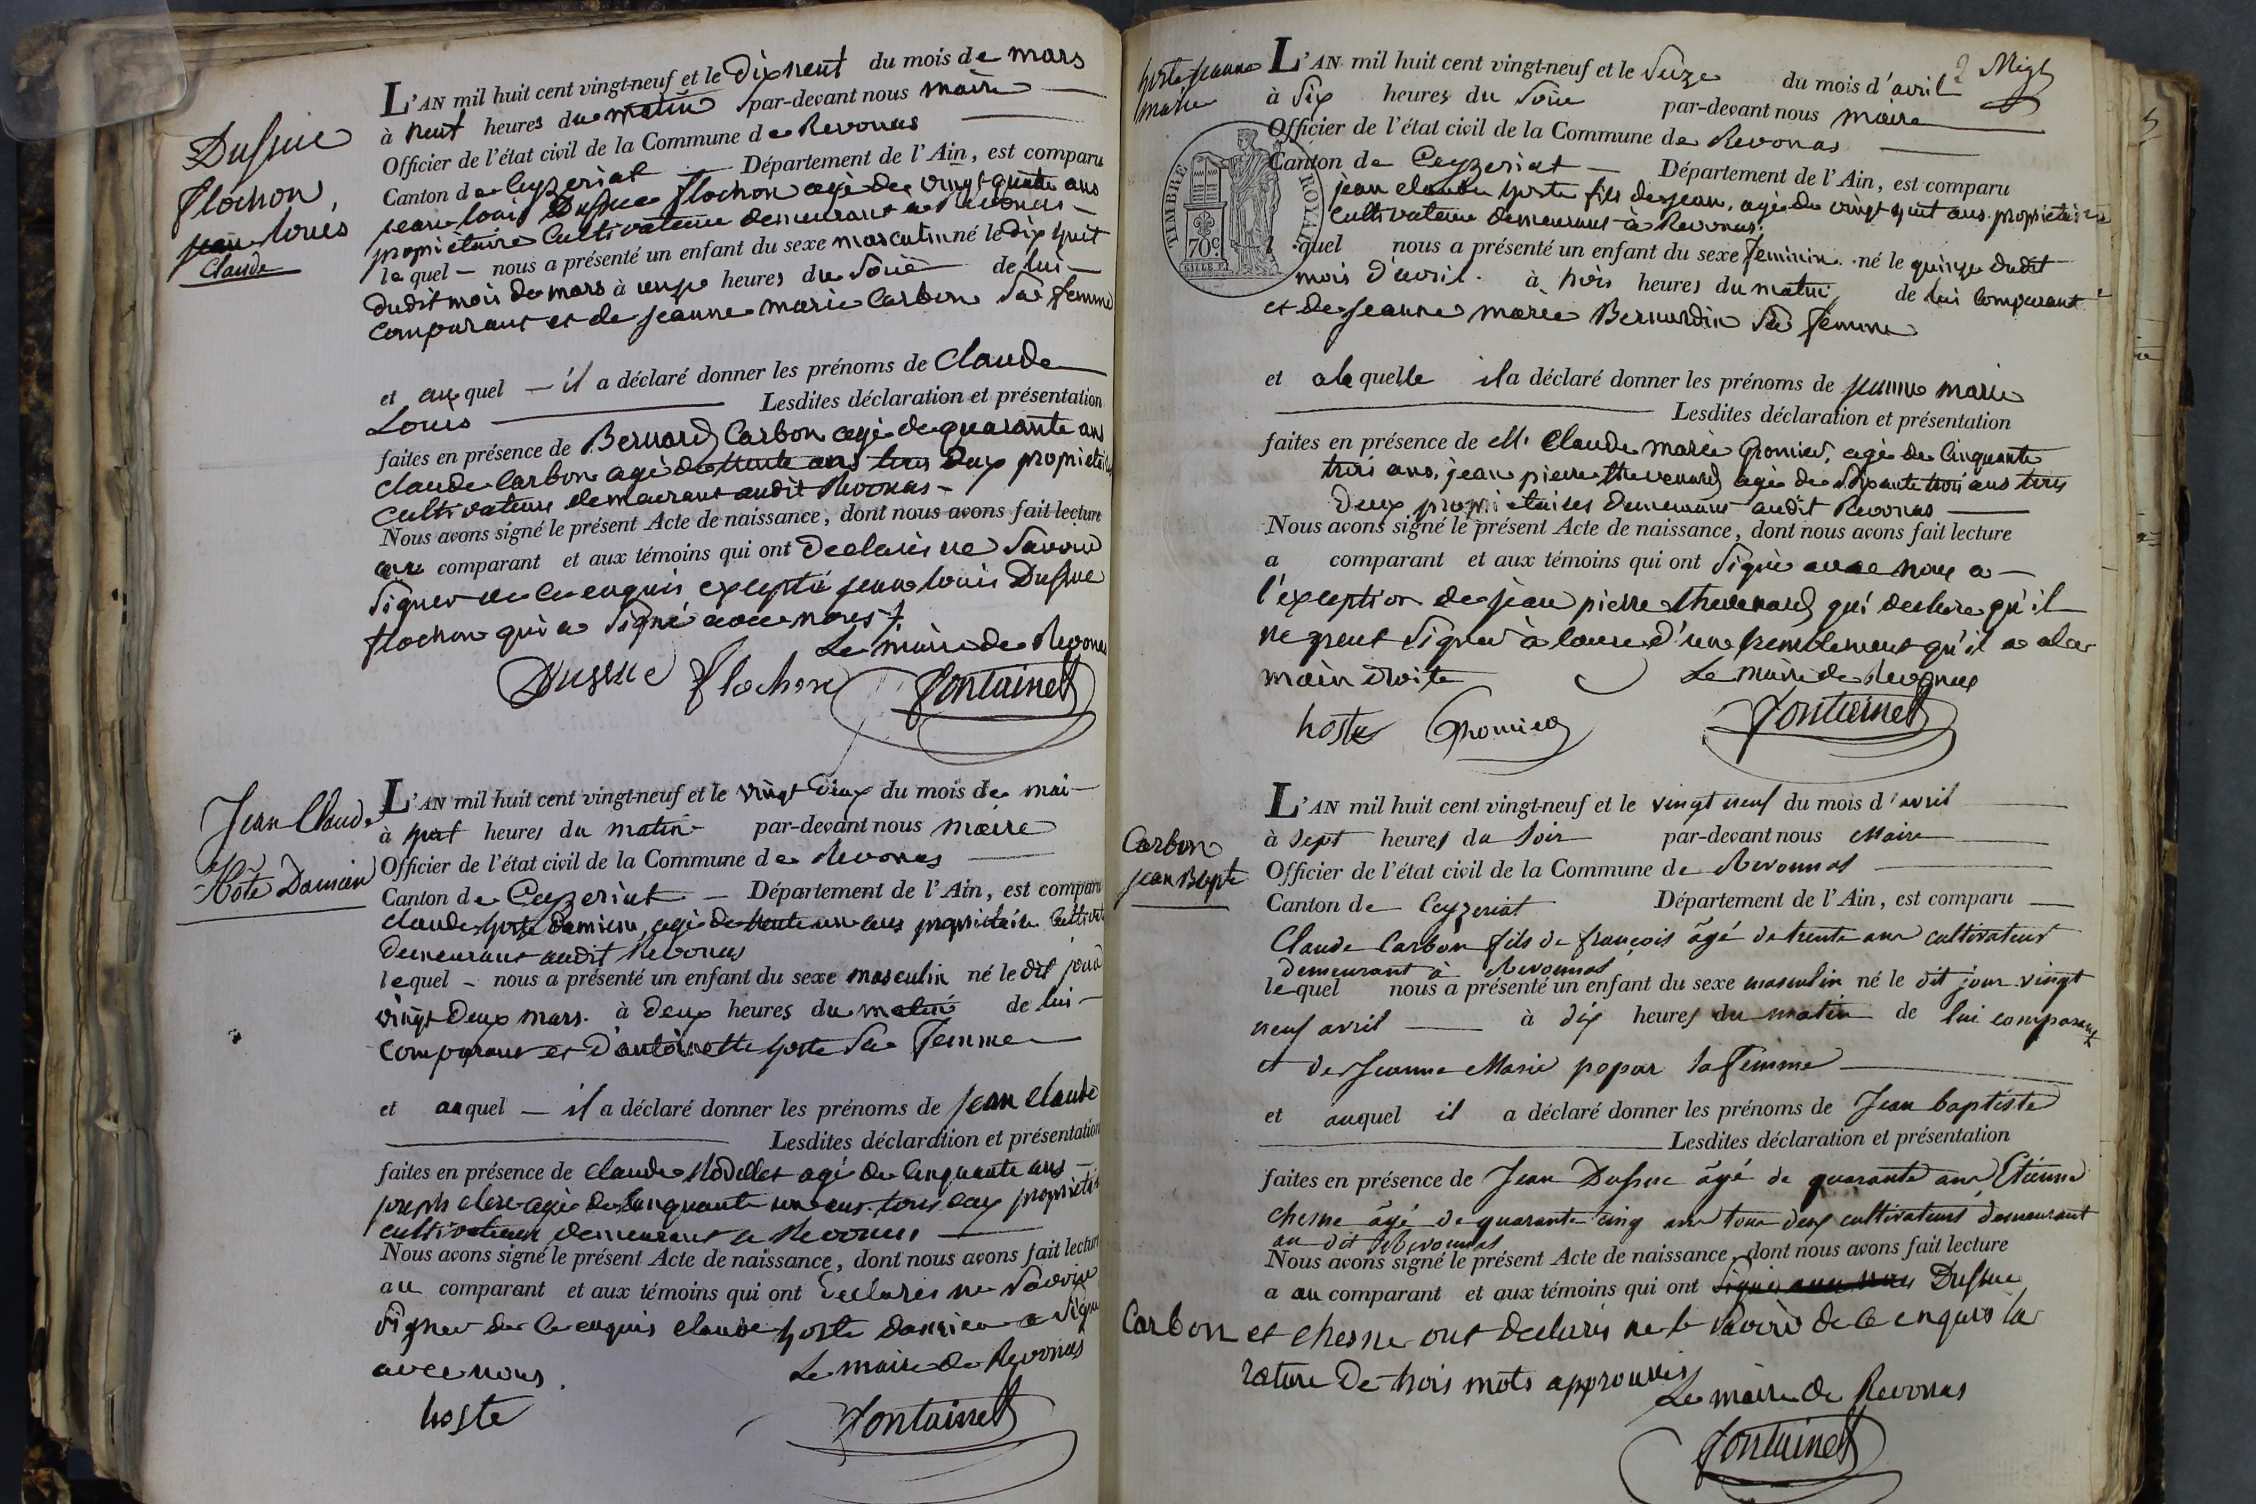 Dufsuc
flochon,
jean louis
Claude
L'AN mil huit cent vingt-neuf et le dixneuf du mois de mars
à neuf heures du matin par-devant nous maire
Officier de l'état civil de la Commune de Revonas
Canton de Ceyzeriat Département de l'Ain, est comparu
jean louis Dufsuc flochon agé de vingt quatre ans
propriétaire Cultivateur demeurant a Revonas
lequel nous a présenté un enfant du sexe masculin né le dix huit
dudit mois de mars à onze heures du Soir de lui
comparant et de jeanne marie Carbon Sa femme
et auquel il a déclaré donner les prénoms de Claude
Louis Lesdites déclaration et présentation
faites en présence de Bernard Carbon agé de quarante ans
Claude Carbon agé de trente ans tous deux propriétaires
Cultivateurs demeurant audit Revonas
Nous avons signé le présent Acte de naissance, dont nous avons fait lecture
au comparant et aux témoins qui ont declarés ne Savoir
Signer de ce enquis excepté jean louis Dufsuc
flochon qui a Signé avec nous
Le maire de Revonas
Dussuc flochon Fontainet
Jean Claude
Hôte Damien
L'AN mil huit cent vingt-neuf et le vingt deux du mois de mai
à huit heures du matin par-devant nous maire
Officier de l'état civil de la Commune de Revonas
Canton de Ceyzeriat Département de l'Ain, est comparu
Claude hoste Damien, agé de trente un ans propriétaire Cultivat
demeurant audit Revonas
lequel nous a présenté un enfant du sexe masculin né le dit jour
vingt deux mars. à deux heures du matin de lui
comparant et d'antoinette hoste Sa femme
et auquel il a déclaré donner les prénoms de jean claude
Lesdites déclaration et présentation
faites en présence de Claude agé de Cinquante ans
joseph clerc agé de Cinquante un ans tous deux propriétaires
cultivateurs demeurant a Revonas
Nous avons signé le présent Acte de naissance, dont nous avons fait lecture
au comparant et aux témoins qui ont declarés ne Savoir
Signer de ce enquis claude hoste damien a Signé
avec nous. Le maire de Revonas
hoste Fontainet
hoste jeanne
marie
L'AN mil huit cent vingt-neuf et le Seize du mois d'avril
à Six heures du Soir par-devant nous maire
Officier de l'état civil de la Commune de Revonas
Canton de Ceyzeriat Département de l'Ain, est comparu
TIMBRE ROYAL
70 c
jean claude hoste fils de jean, agé de vingt huit ans propriétaire
Cultivateur demeurant à Revonas.
lequel nous a présenté un enfant du sexe feminin né le quinze dudit
mois d'avril. à trois heures du matin, de lui Comparant
et de jeanne marie Bernardin Sa femme
et a laquelle il a déclaré donner les prénoms de jeanne marie
Lesdites déclaration et présentation
faites en présence de Mr. Claude marie Gromier, agé de Cinquante
trois ans, jean pierre thevenard agé de Soixante trois ans tous
deux propriétaires demeurant audit Revonas
Nous avons signé le présent Acte de naissance, dont nous avons fait lecture
a comparant et aux témoins qui ont Signé avec nous a
l'exception de jean pierre thevenard qui declare qu'il
ne peut Signer à cause d'un tremblement qu'il a a la
main droite Le maire de Revonas
hoste Gromier Fontainet
Carbon
jean Bapte
L'AN mil huit cent vingt-neuf et le vingt neuf du mois d'avril
à sept heures du soir par-devant nous Maire
Officier de l'état civil de la Commune de Revonnas
Canton de Ceyzeriat Département de l'Ain, est comparu
Claude Carbon fils de françois âgé de trente ans cultivateur
demeurant à Revonnas
lequel nous a présenté un enfant du sexe masculin né le dit jour vingt
neuf avril à dix heures du matin de lui comparant
et de Jeanne Marie popar sa femme
et auquel il a déclaré donner les prénoms de Jean baptiste
Lesdites déclaration et présentation
faites en présence de Jean Dufsuc âgé de quarante ans Etienne
chesne âgé de quarante cinq ans tous deux cultivateurs demeurant
au dit Revonnas
Nous avons signé le présent Acte de naissance, dont nous avons fait lecture
a au comparant et aux témoins qui ont signé avec nous Dufsuc
Carbon et chesne ont declarés ne le Savoir de ce enquis la
rature de trois mots approuvés
Le maire de Revonas
Fontainet